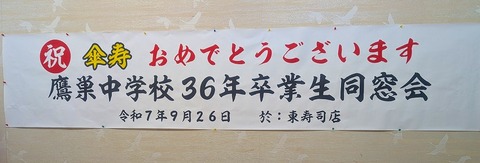 祝 傘寿 おめでとうございます
鷹巣中学校36年卒業生同窓会
令和7年9月26日 於:東寿司店